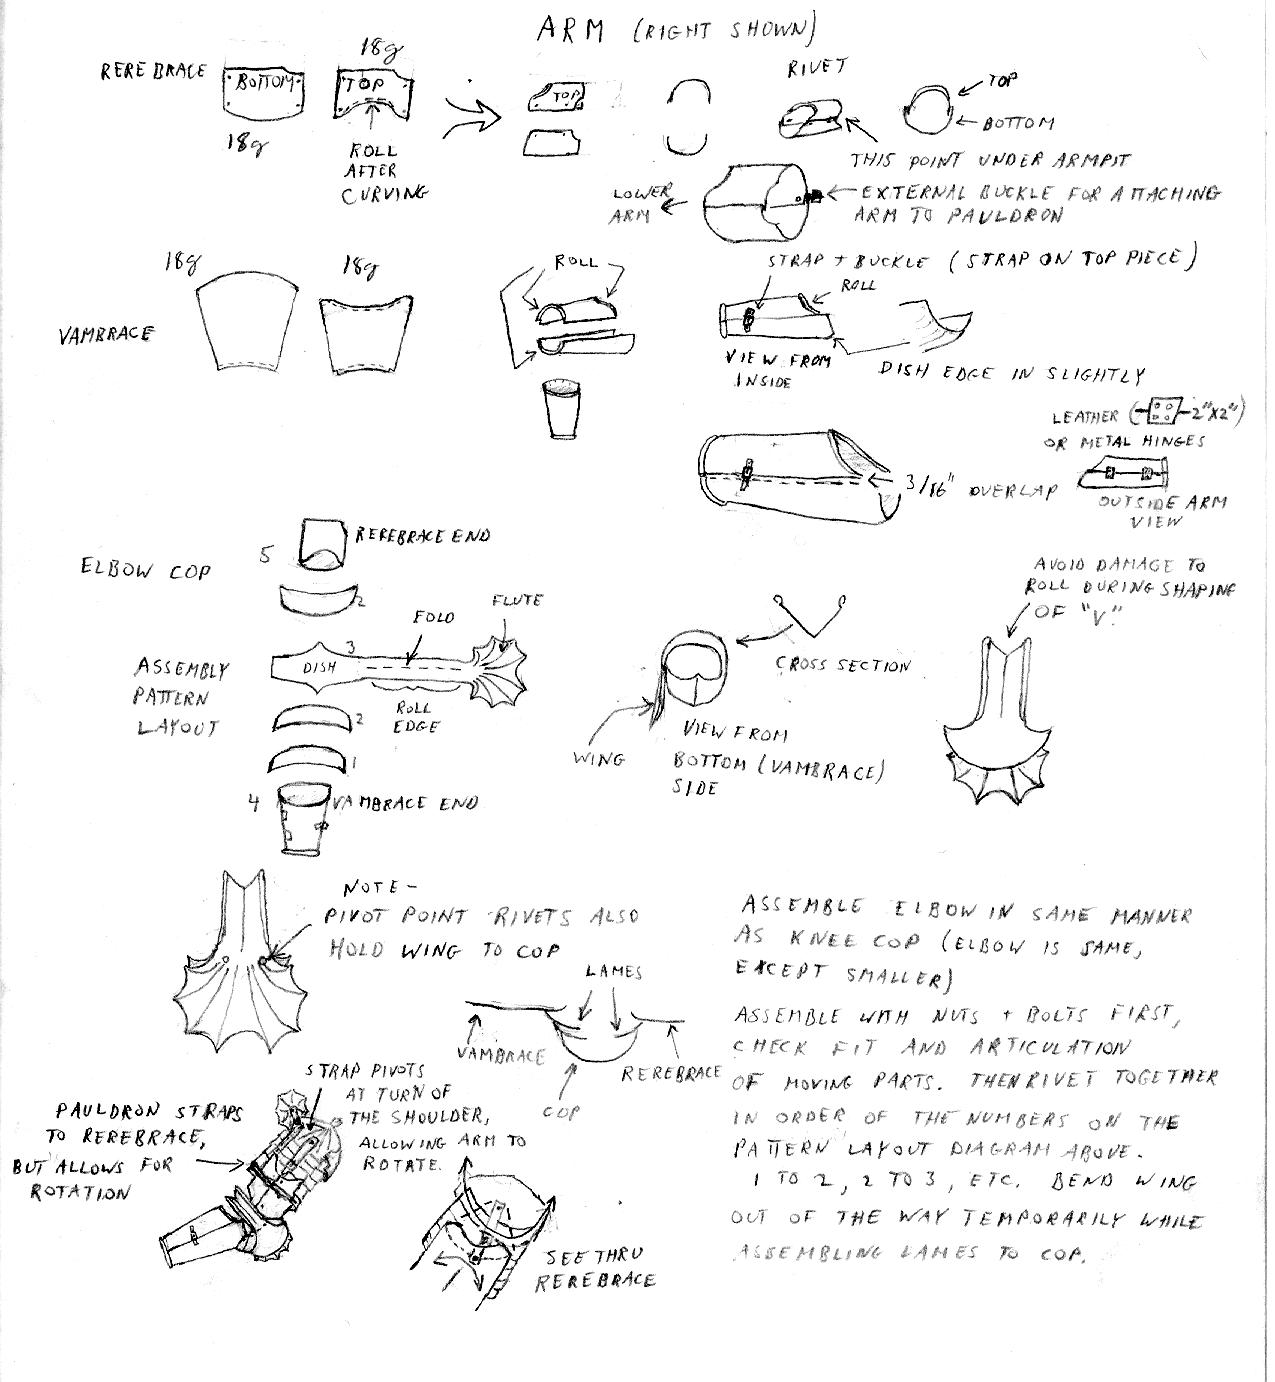 ARM (RIGHT SHOWN)
REREBRACE
BOTTOM
18g
18g
TOP
ROLL
AFTER
CURVING
TOP
RIVET
TOP
BOTTOM
THIS POINT UNDER ARMPIT
LOWER
ARM
EXTERNAL BUCKLE FOR ATTACHING
ARM TO PAULDRON
VAMBRACE
18g
18g
ROLL
STRAP + BUCKLE (STRAP ON TOP PIECE)
ROLL
VIEW FROM
INSIDE
DISH EDGE IN SLIGHTLY
LEATHER ( 2"X2")
OR METAL HINGES
3/16" OVERLAP
OUTSIDE ARM
VIEW
ELBOW COP
5
REREBRACE END
2
ASSEMBLY
PATTERN
LAYOUT
DISH
3
FOLD
FLUTE
ROLL
EDGE
2
1
4
VAMBRACE END
CROSS SECTION
WING
VIEW FROM
BOTTOM (VAMBRACE)
SIDE
AVOID DAMAGE TO
ROLL DURING SHAPING
OF "V".
NOTE -
PIVOT POINT RIVETS ALSO
HOLD WING TO COP
LAMES
VAMBRACE
REREBRACE
COP
ASSEMBLE ELBOW IN SAME MANNER
AS KNEE COP (ELBOW IS SAME,
EXCEPT SMALLER)
ASSEMBLE WITH NUTS + BOLTS FIRST,
CHECK FIT AND ARTICULATION
OF MOVING PARTS. THEN RIVET TOGETHER
IN ORDER OF THE NUMBERS ON THE
PATTERN LAYOUT DIAGRAM ABOVE.
1 TO 2, 2 TO 3, ETC. BEND WING
OUT OF THE WAY TEMPORARILY WHILE
ASSEMBLING LAMES TO COP.
STRAP PIVOTS
AT TURN OF
THE SHOULDER,
ALLOWING ARM TO
ROTATE.
PAULDRON STRAPS
TO REREBRACE,
BUT ALLOWS FOR
ROTATION
SEE THRU
REREBRACE